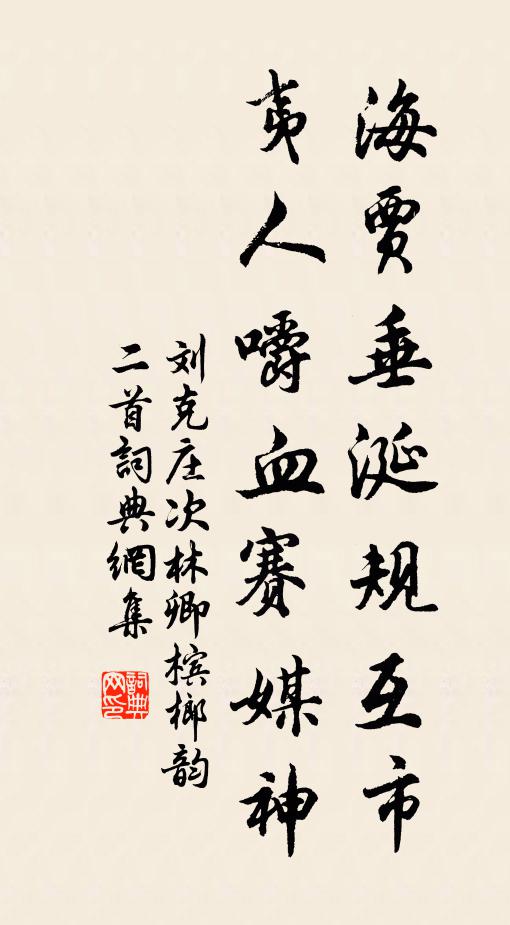 海贾垂涎规互市
夷人嚼血赛媒神
刘克庄次林卿槟榔韵
二首詞典網集
詞典网印